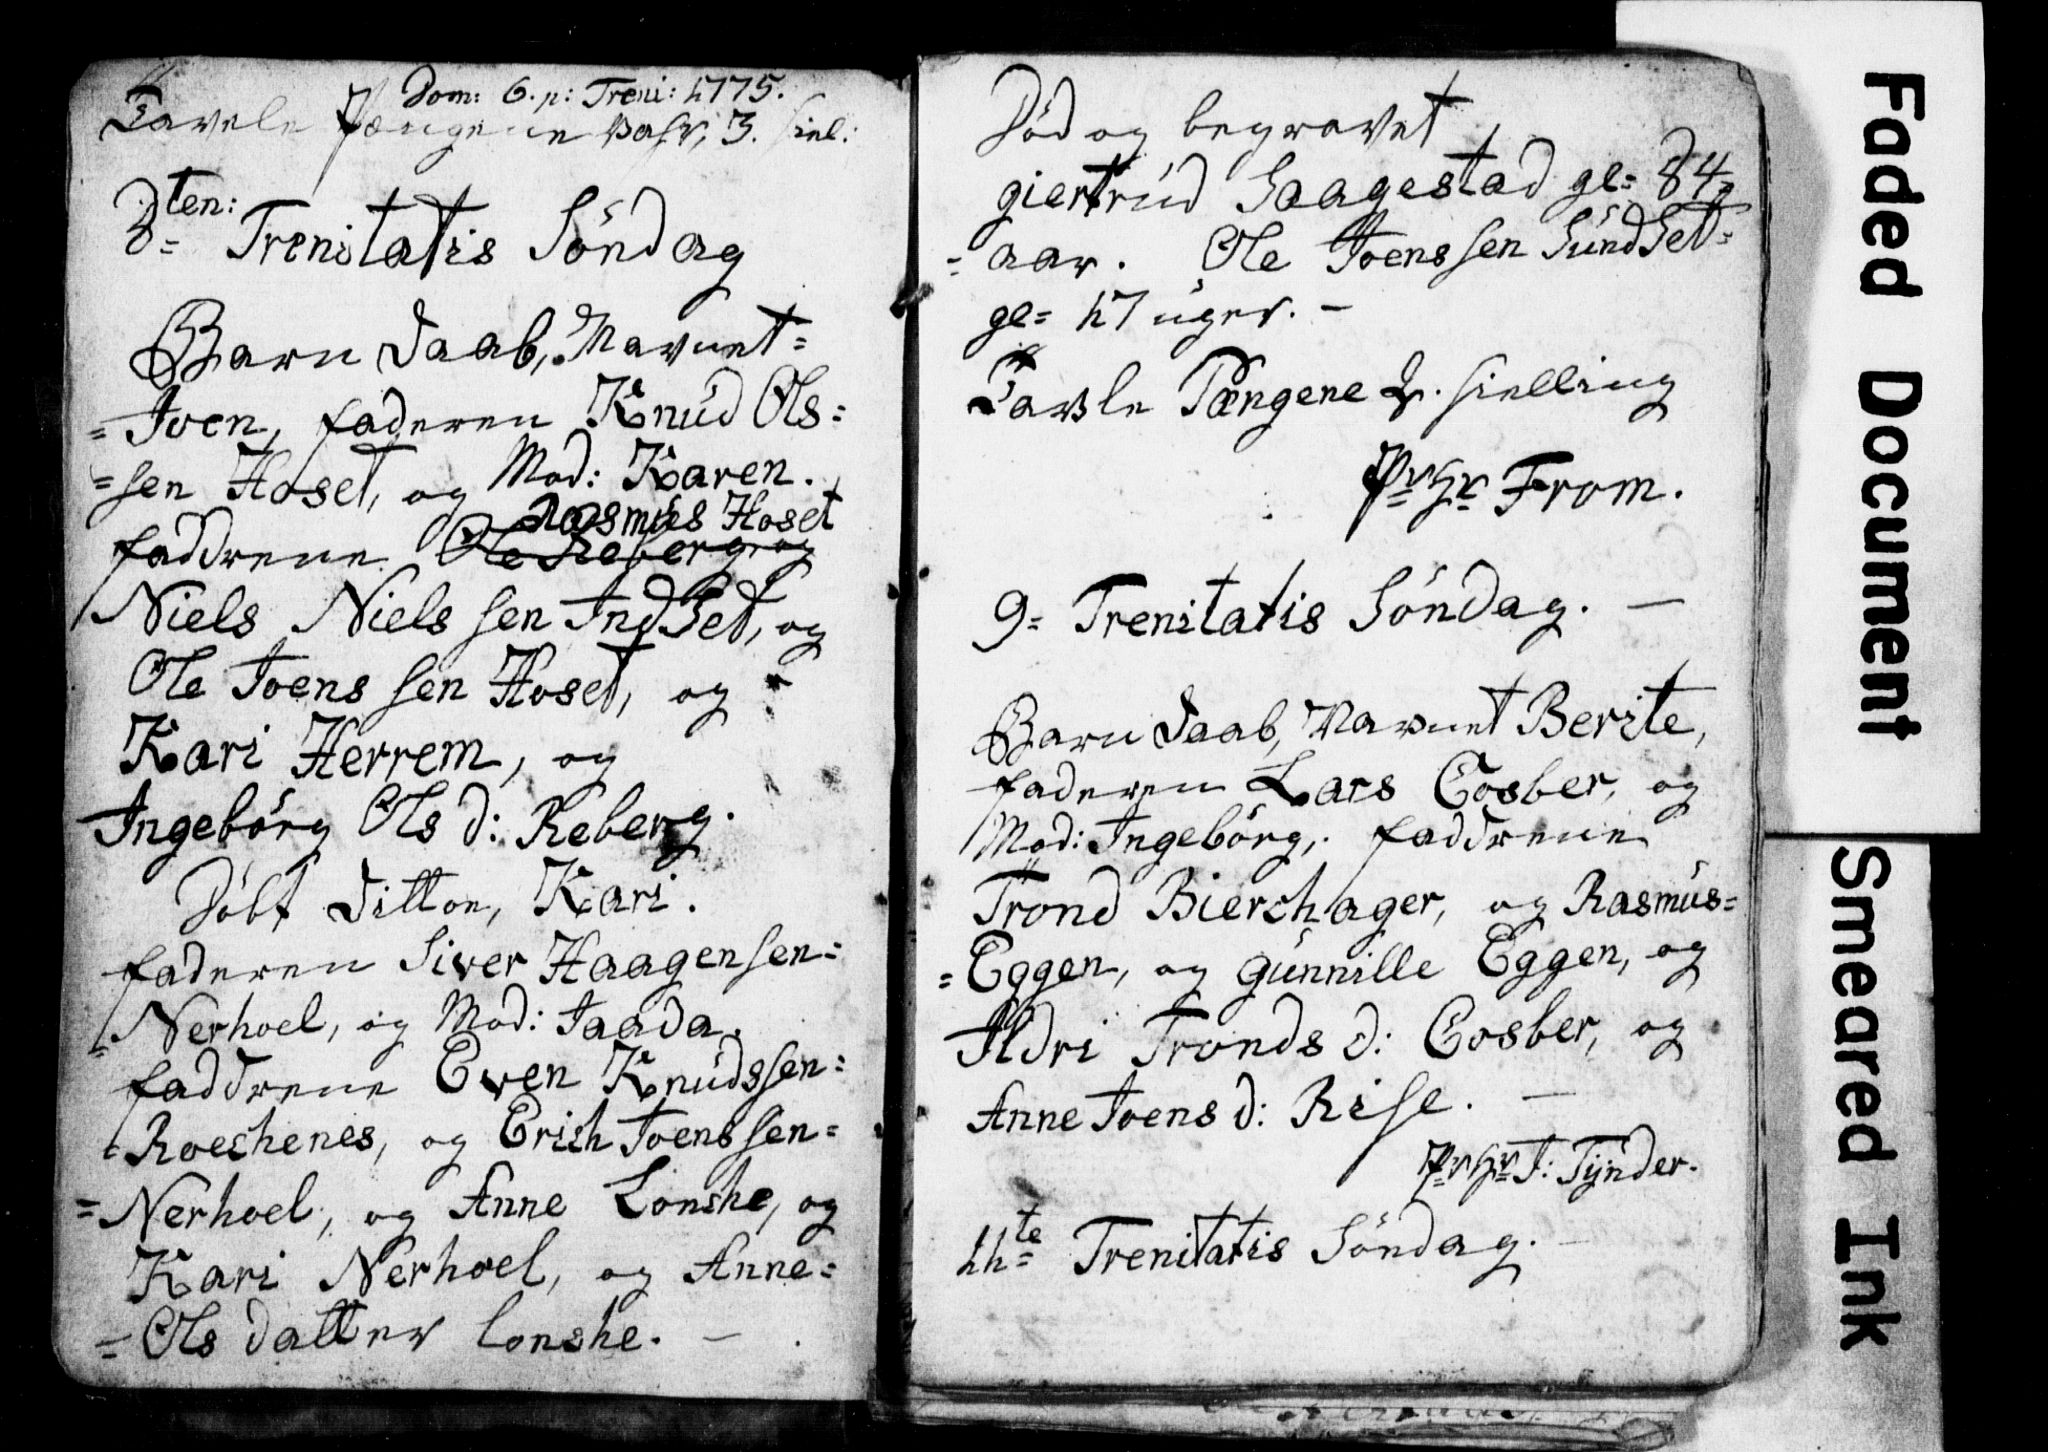 Dom: 6. p: Treni: 1775.
Tavele Pængene var, 3. siel:
8ten: Trenitatis Söndag
Barn Daab, Navnet=
=Joen, faderen Knud Ols=
=sen Hoset, og Mod: Karen.
Rasmus Hoset
faddrene Ole Reberg, og
Niels Nielssen IndSet, og
Ole Joenssen Hoset, og
Kari Herrem, og
Ingebörg Ols d: Reberg.
Döbt Ditton, Kari.
faderen Siver Haagensen=
=Nerhoel, og Mod: Jaada.
faddrene Even Knudssen=
=Roechenes, og Erich Joenssen=
=Nerhoel, og Anne Lonshe, og
Kari Nerhoel, og Anne=
=Ols datter lonshe. —
Död og begravet
giertrud Saagestad gl= 84=
=aar. Ole Joenssen SundSet=
gl= 17 uger. —
Tavle Pængene 2. sielling
Pr Hr From.
9= Trenitatis Söndag. —
Barn Daab, Navnet Berite,
faderen Lars Cosber, og
Mod: Ingebörg, faddrene
Trond Bierchager, og Rasmus=
=Eggen, og gunnille Eggen, og
Ildri Tronds d: Cosber, og
Anne Joens d: Rise. —
Pr Hr J: Tynder.
11te= Trenitatis Söndag. —
Faded Document
Smeared Ink